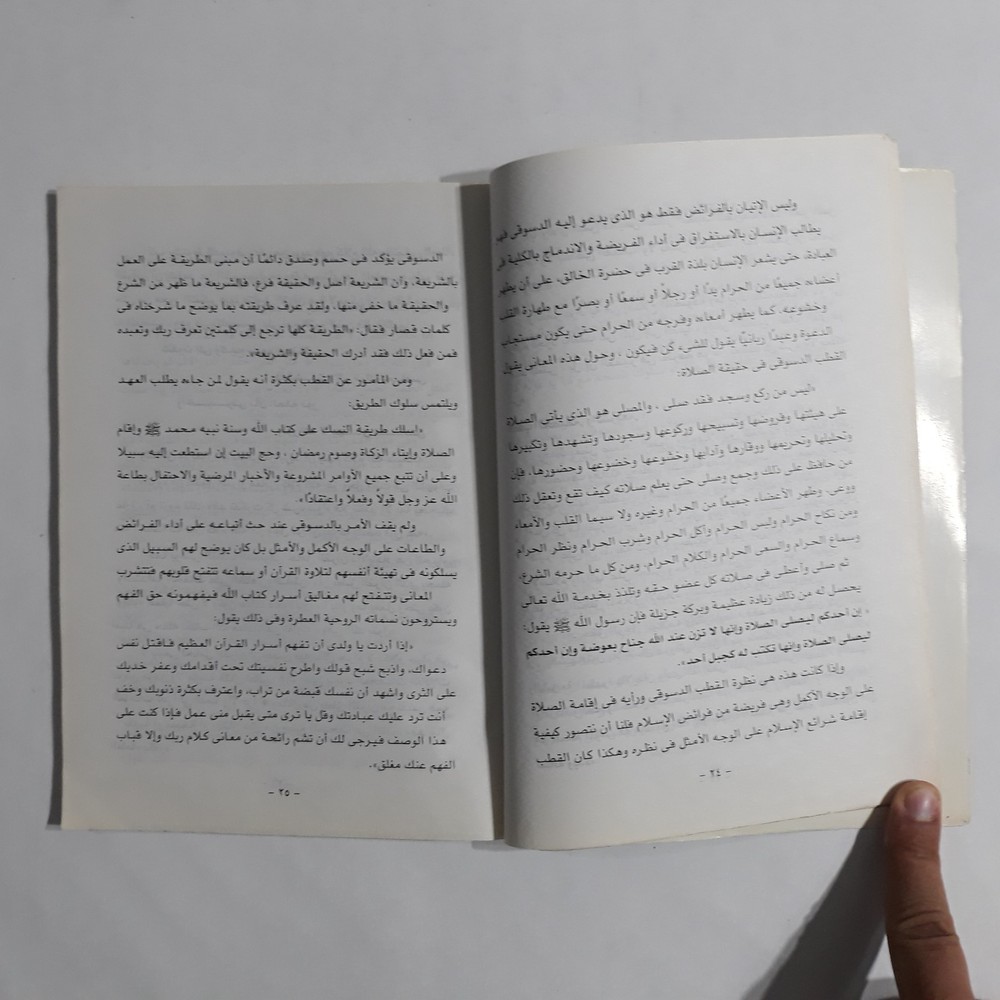 وليس الإتيان بالفرائض فقط هو الذى يدعو إليه الدسوقى فهو
يطالب الإنسان بالاستغراق فى أداء الفريضة والاندماج بالكلية فى
العبادة، حتى يشعر الإنسان بلذة القرب فى حضرة الخالق، على أن يطهر
أعضاءه جميعًا من الحرام يدًا أو رجلاً أو سمعًا أو بصرًا مع طهارة القلب
وخشوعه، كما يطهر أمعاءه وفرجه من الحرام حتى يكون مستجاب
الدعوة وعبدًا ربانيًا يقول للشىء كن فيكون ، وحول هذه المعانى يقول
القطب الدسوقى فى حقيقة الصلاة:
«ليس من ركع وسجد فقد صلى ، والمصلى هو الذى يأتى الصلاة
على هيئتها وفروضها وتسبيحها وركوعها وسجودها وتشهدها وتكبيرها
وتحليلها وتحريمها ووقارها وآدابها وخشوعها وخضوعها وحضورها، فإن
من حافظ على ذلك وجمع وصلى حتى يعلم صلاته كيف تقع وتعقل ذلك
ووعى، وطهر الأعضاء جميعًا من الحرام وغيره ولا سيما القلب والأمعاء
ومن نكاح الحرام ولبس الحرام وأكل الحرام وشرب الحرام ونظر الحرام
وسماع الحرام والسعى الحرام والكلام الحرام، ومن كل ما حرمه الشرع،
ثم صلى وأعطى فى صلاته كل عضو حقه وتلذذ بخدمة الله تعالى
يحصل له من ذلك زيادة عظيمة وبركة جزيلة فإن رسول الله ﷺ يقول:
« إن أحدكم ليصلى الصلاة وإنها لا تزن عند الله جناح بعوضة وإن أحدكم
ليصلى الصلاة وإنها تكتب له كجبل أحد».
وإذا كانت هذه هى نظرة القطب الدسوقى ورأيه فى إقامة الصلاة
على الوجه الأكمل وهى فريضة من فرائض الإسلام فلنا أن نتصور كيفية
إقامة شرائع الإسلام على الوجه الأمثل فى نظره وهكذا كان القطب
- ٢٤ -
الدسوقى يؤكد فى حسم وصدق دائمًا أن مبنى الطريقة على العمل
بالشريعة، وأن الشريعة أصل والحقيقة فرع، فالشريعة ما ظهر من الشرع
والحقيقة ما خفى منها، ولقد عرف طريقته بما يوضح ما شرحناه فى
كلمات قصار فقال: «الطريقة كلها ترجع إلى كلمتين تعرف ربك وتعبده
فمن فعل ذلك فقد أدرك الحقيقة والشريعة».
ومن المأمور عن القطب بكثرة أنه يقول لمن جاءه يطلب العهد
ويلتمس سلوك الطريق:
«اسلك طريقة النسك على كتاب الله وسنة نبيه محمد ﷺ وإقام
الصلاة وإيتاء الزكاة وصوم رمضان ، وحج البيت إن استطعت إليه سبيلا
وعلى أن تتبع جميع الأوامر المشروعة والأخبار المرضية والاحتفال بطاعة
الله عز وجل قولاً وفعلاً واعتقادًا».
ولم يقف الأمر بالدسوقى عند حث أتباعه على أداء الفرائض
والطاعات على الوجه الأكمل والأمثل بل كان يوضح لهم السبيل الذى
يسلكونه فى تهيئة أنفسهم لتلاوة القرآن أو سماعه تتفتح قلوبهم فتتشرب
المعانى وتتفتح لهم مغاليق أسرار كتاب الله فيفهمونه حق الفهم
ويستروحون نسماته الروحية العطرة وفى ذلك يقول:
«إذا أردت يا ولدى أن تفهم أسرار القرآن العظيم فاقتل نفس
دعواك، واذبح شبح قولك واطرح نفسيتك تحت أقدامك وعفر خديك
على الثرى واشهد أن نفسك قبضة من تراب، واعترف بكثرة ذنوبك وخف
أنت ترد عليك عبادتك وقل يا ترى متى يقبل منى عمل فإذا كنت على
هذا الوصف فيرجى لك أن تشم رائحة من معانى كلام ربك وإلا فباب
الفهم عنك مغلق».
- ٢٥ -